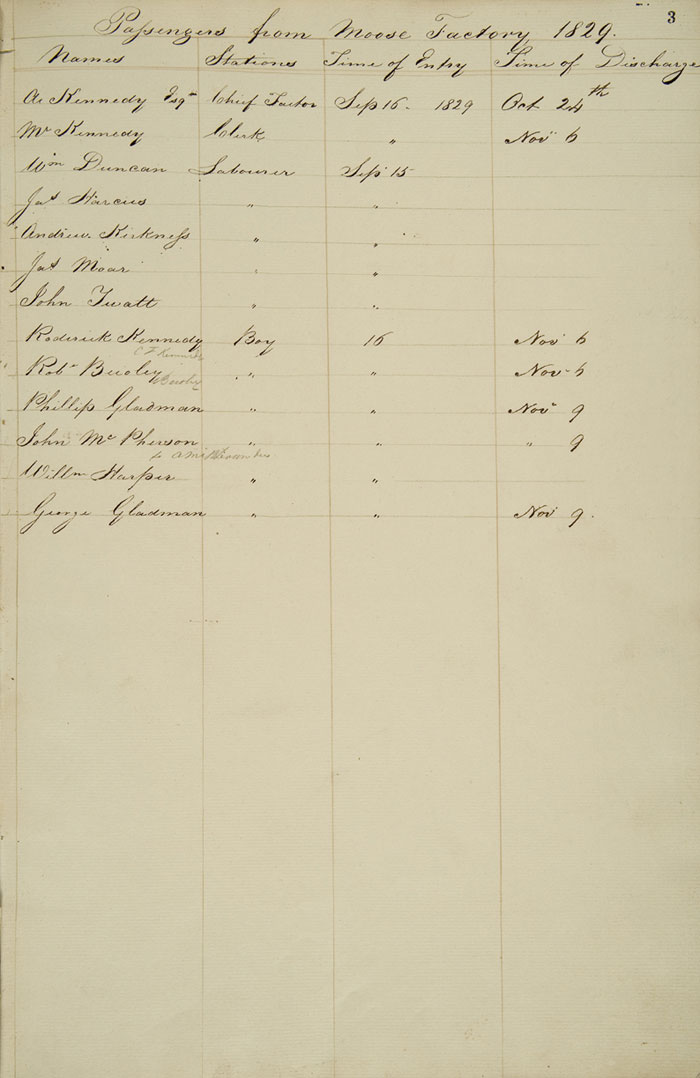 3
Passengers from Moose Factory, 1829.
Names Stations Time of Entry Time of Discharge
Ar Kennedy Esqr Chief Factor Sep 16 - 1829 Oct 24th
Mr Kennedy Clerk " Nov 6
Wm Duncan Labourer Sep 15
Jas Harcus " "
Andrew Kirkness " "
Jas Moar " "
John Twatt " "
Roderick Kennedy Boy 16 Nov 6
Robt " " Nov 6
Phillip Gladman " " Nov 9
John Mc Pherson " " " 9
Willm Harper " "
George Gladman " " Nov 9.